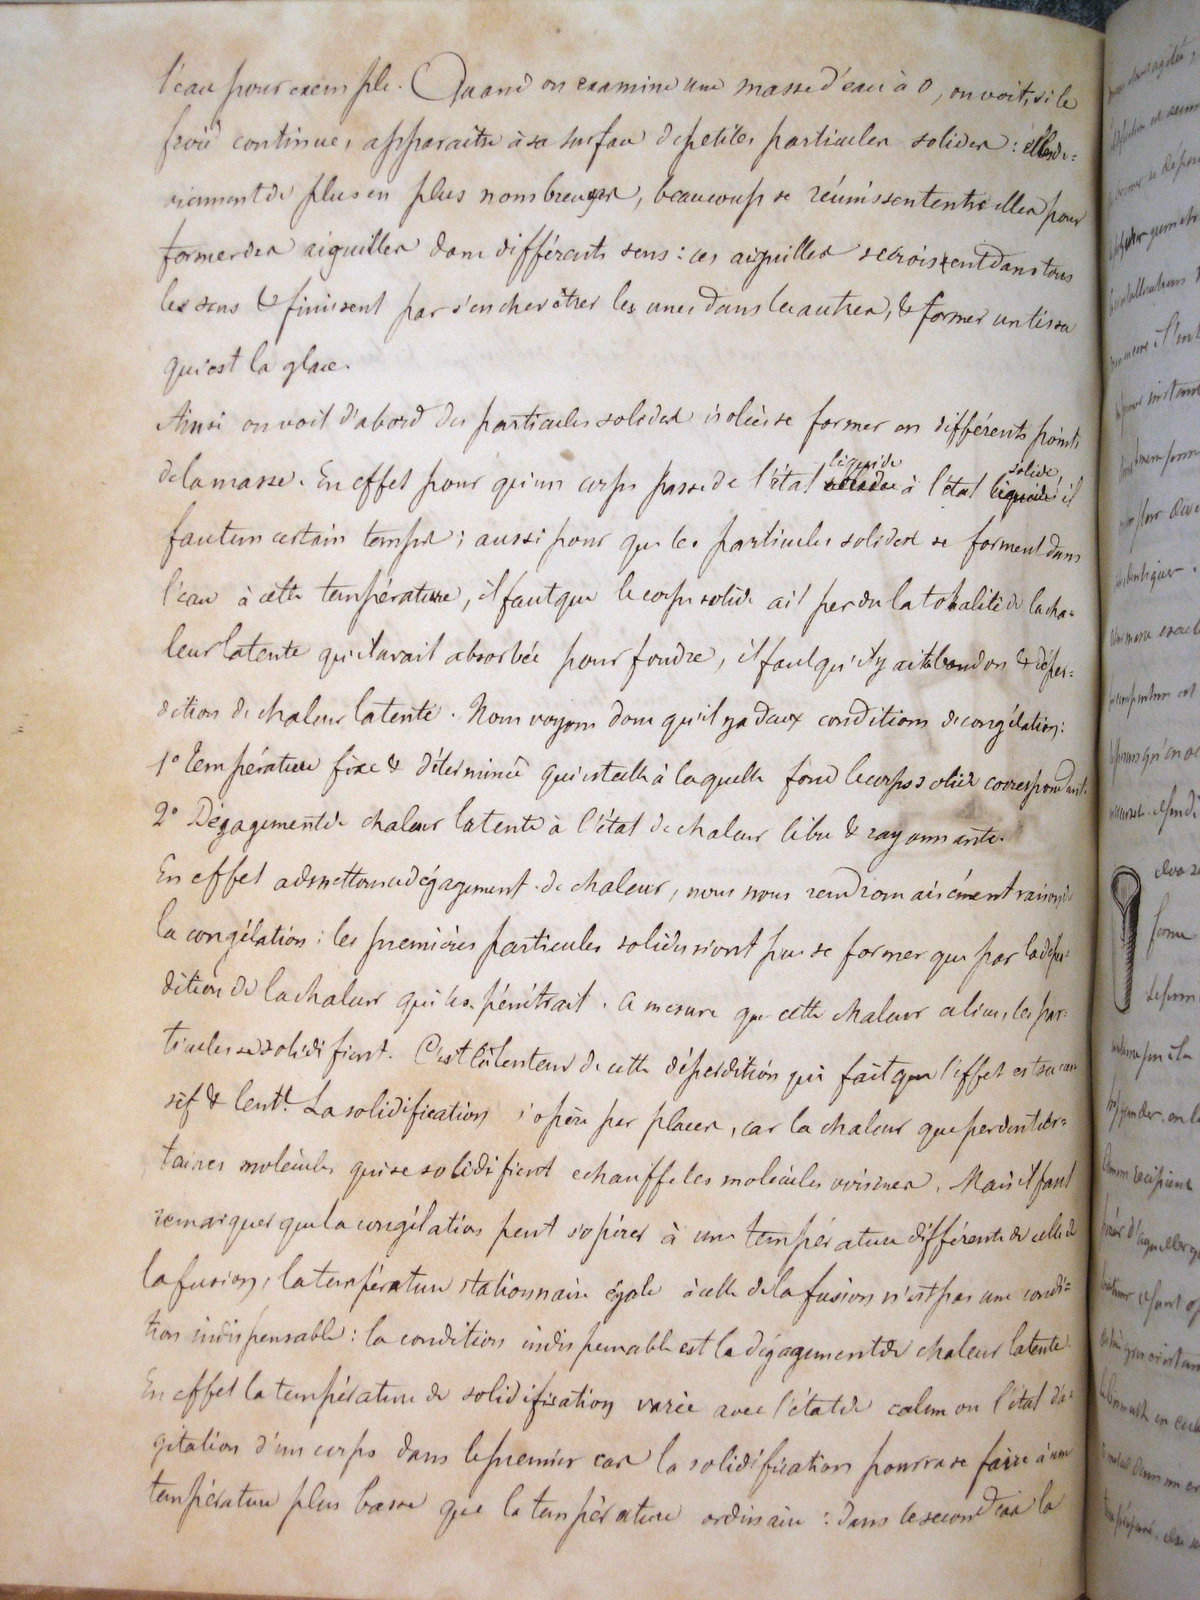 l'eau pour exemple. Quand on examine une masse d'eau à 0, on voit, si le
froid continue, apparaitre à sa surface de petites particules solides : elles de=
viennent de plus en plus nombreuses, beaucoup se réunissent entre elles pour
former des aiguilles dans différents sens : ces aiguilles se croisent dans tous
les sens & finissent par s'enchevêtrer les unes dans les autres, & former un tissu
qui est la glace.
Ainsi on voit d'abord des particules solides isolées se former en différents points
de la masse. En effet pour qu'un corps passe de l'état liquide à l'état solide il
faut un certain temps ; aussi pour que les particules solides se forment dans
l'eau à cette température, il faut que le corps solide ait perdu la totalité de la cha=
leur latente qu'il avait absorbée pour fondre, il faut qu'il y ait abandon & déper=
dition de chaleur latente. Nous voyons donc qu'il y a deux conditions de congélation :
1° Température fixe & déterminée qui est celle à laquelle fond le corps solide correspondant.
2° Dégagement de chaleur latente à l'état de chaleur libre & rayonnante.
En effet admettons ce dégagement de chaleur, nous nous rendrons aisément raison de
la congélation : les premières particules solides n'ont pu se former que par la déper=
dition de la chaleur qui les pénétrait. A mesure que cette chaleur a lieu, les par=
ticules se solidifient. C'est la lenteur de cette déperdition qui fait que l'effet est succes
sif & lent. La solidification s'opère par places, car la chaleur que perdent cer=
taines molécules qui se solidifient echauffe les molécules voisines. Mais il faut
remarquer que la congélation peut s'opérer à une température différente de celle de
la fusion, la température stationnaire égale à celle de la fusion n'est pas une condi=
tion indispensable : la condition indispensable est le dégagement de chaleur latente.
En effet la température de solidification varie avec l'état de calme ou l'état d'a=
gitation d'un corps dans le premier cas la solidification pourra se faire à une
température plus basse que la température ordinaire : dans le second cas la